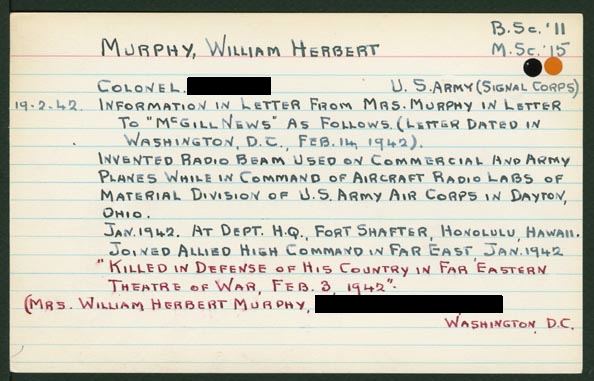 B.Sc.'11
MURPHY, WILLIAM HERBERT M.Sc.'15
COLONEL. U.S. ARMY (SIGNAL CORPS)
19-2-42. INFORMATION IN LETTER FROM MRS. MURPHY IN LETTER
TO "MCGILL NEWS" AS FOLLOWS. (LETTER DATED IN
WASHINGTON, D.C., FEB. 14, 1942).
INVENTED RADIO BEAM USED ON COMMERCIAL AND ARMY
PLANES WHILE IN COMMAND OF AIRCRAFT RADIO LABS OF
MATERIAL DIVISION OF U.S. ARMY AIR CORPS IN DAYTON,
OHIO.
JAN. 1942. AT DEPT. H.Q., FORT SHAFTER, HONOLULU, HAWAII.
JOINED ALLIED HIGH COMMAND IN FAR EAST, JAN. 1942
"KILLED IN DEFENSE OF HIS COUNTRY IN FAR EASTERN
THEATRE OF WAR, FEB. 3, 1942".
(MRS. WILLIAM HERBERT MURPHY,
WASHINGTON, D.C.